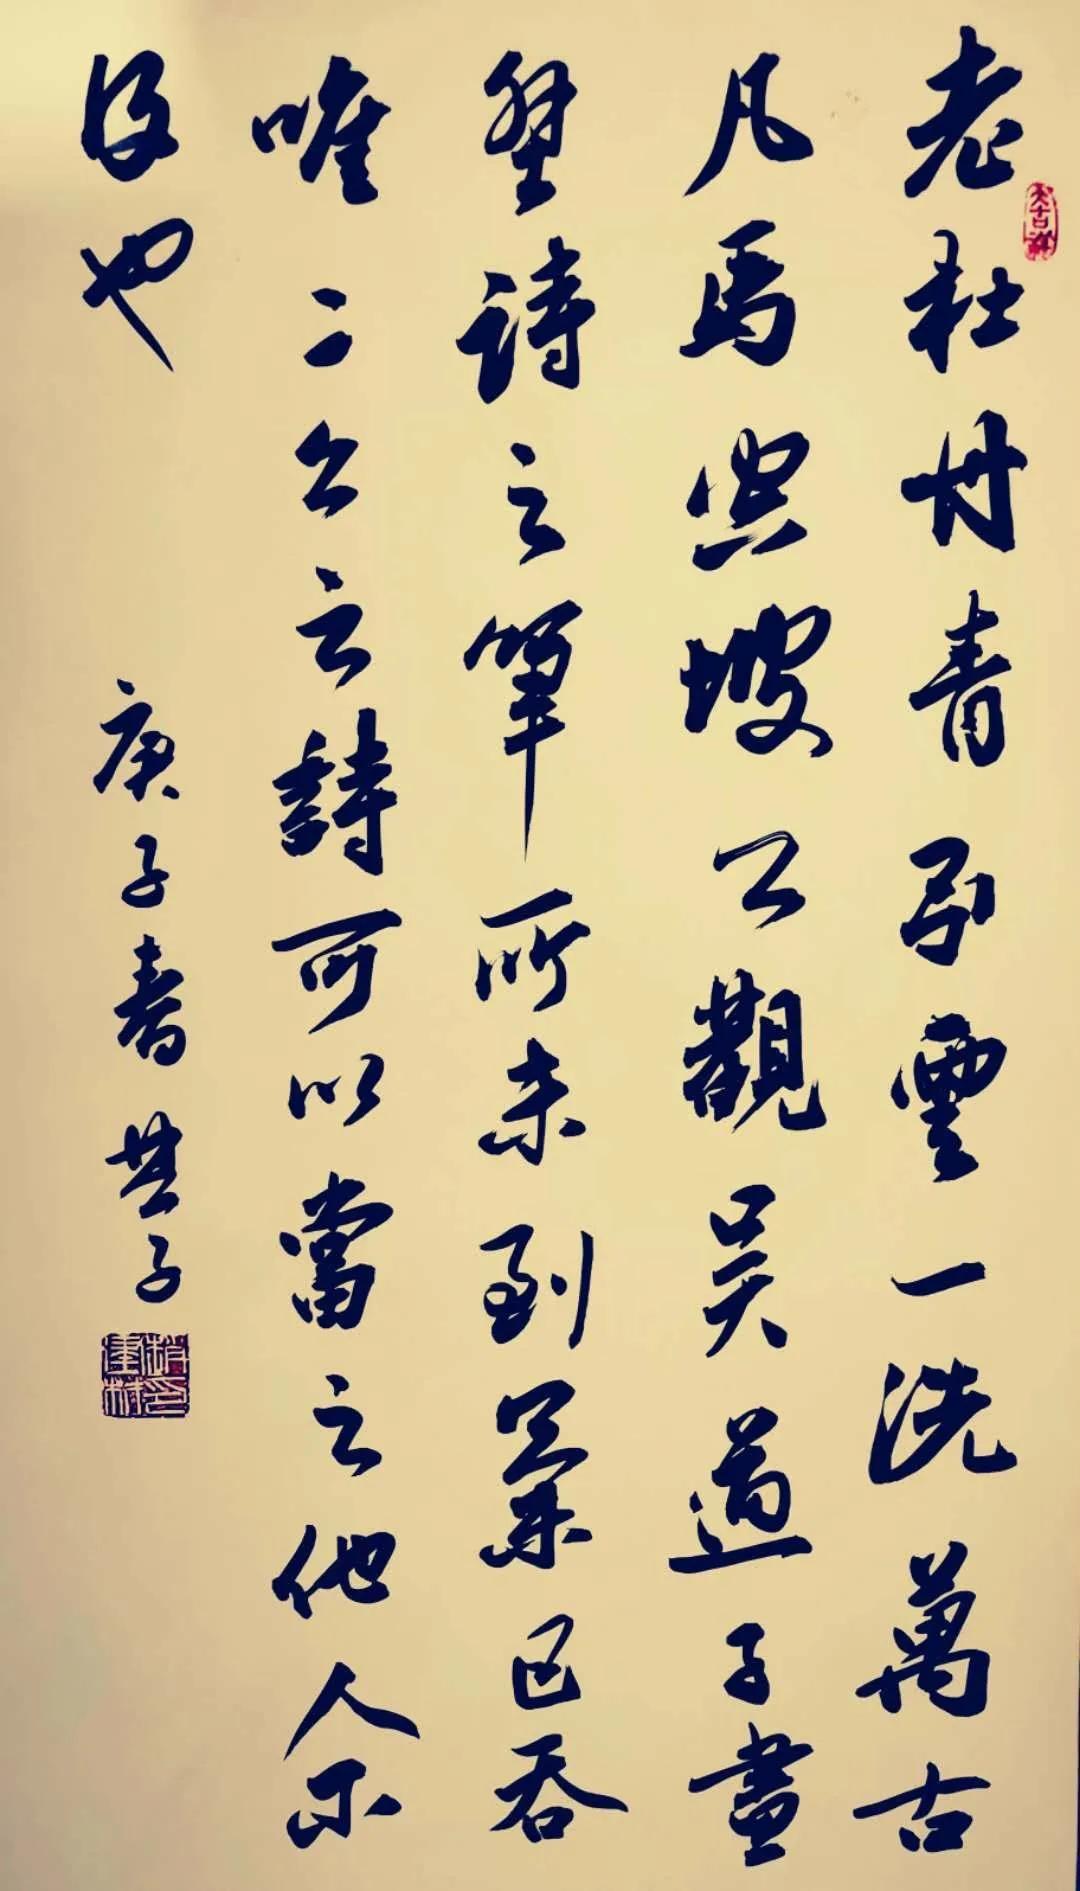 老杜丹青引雲一洗萬古
凡馬空坡公觀吳道子畫
壁詩云筆所未到氣已吞
唯二公之詩可以當之他人不
也
庚子春